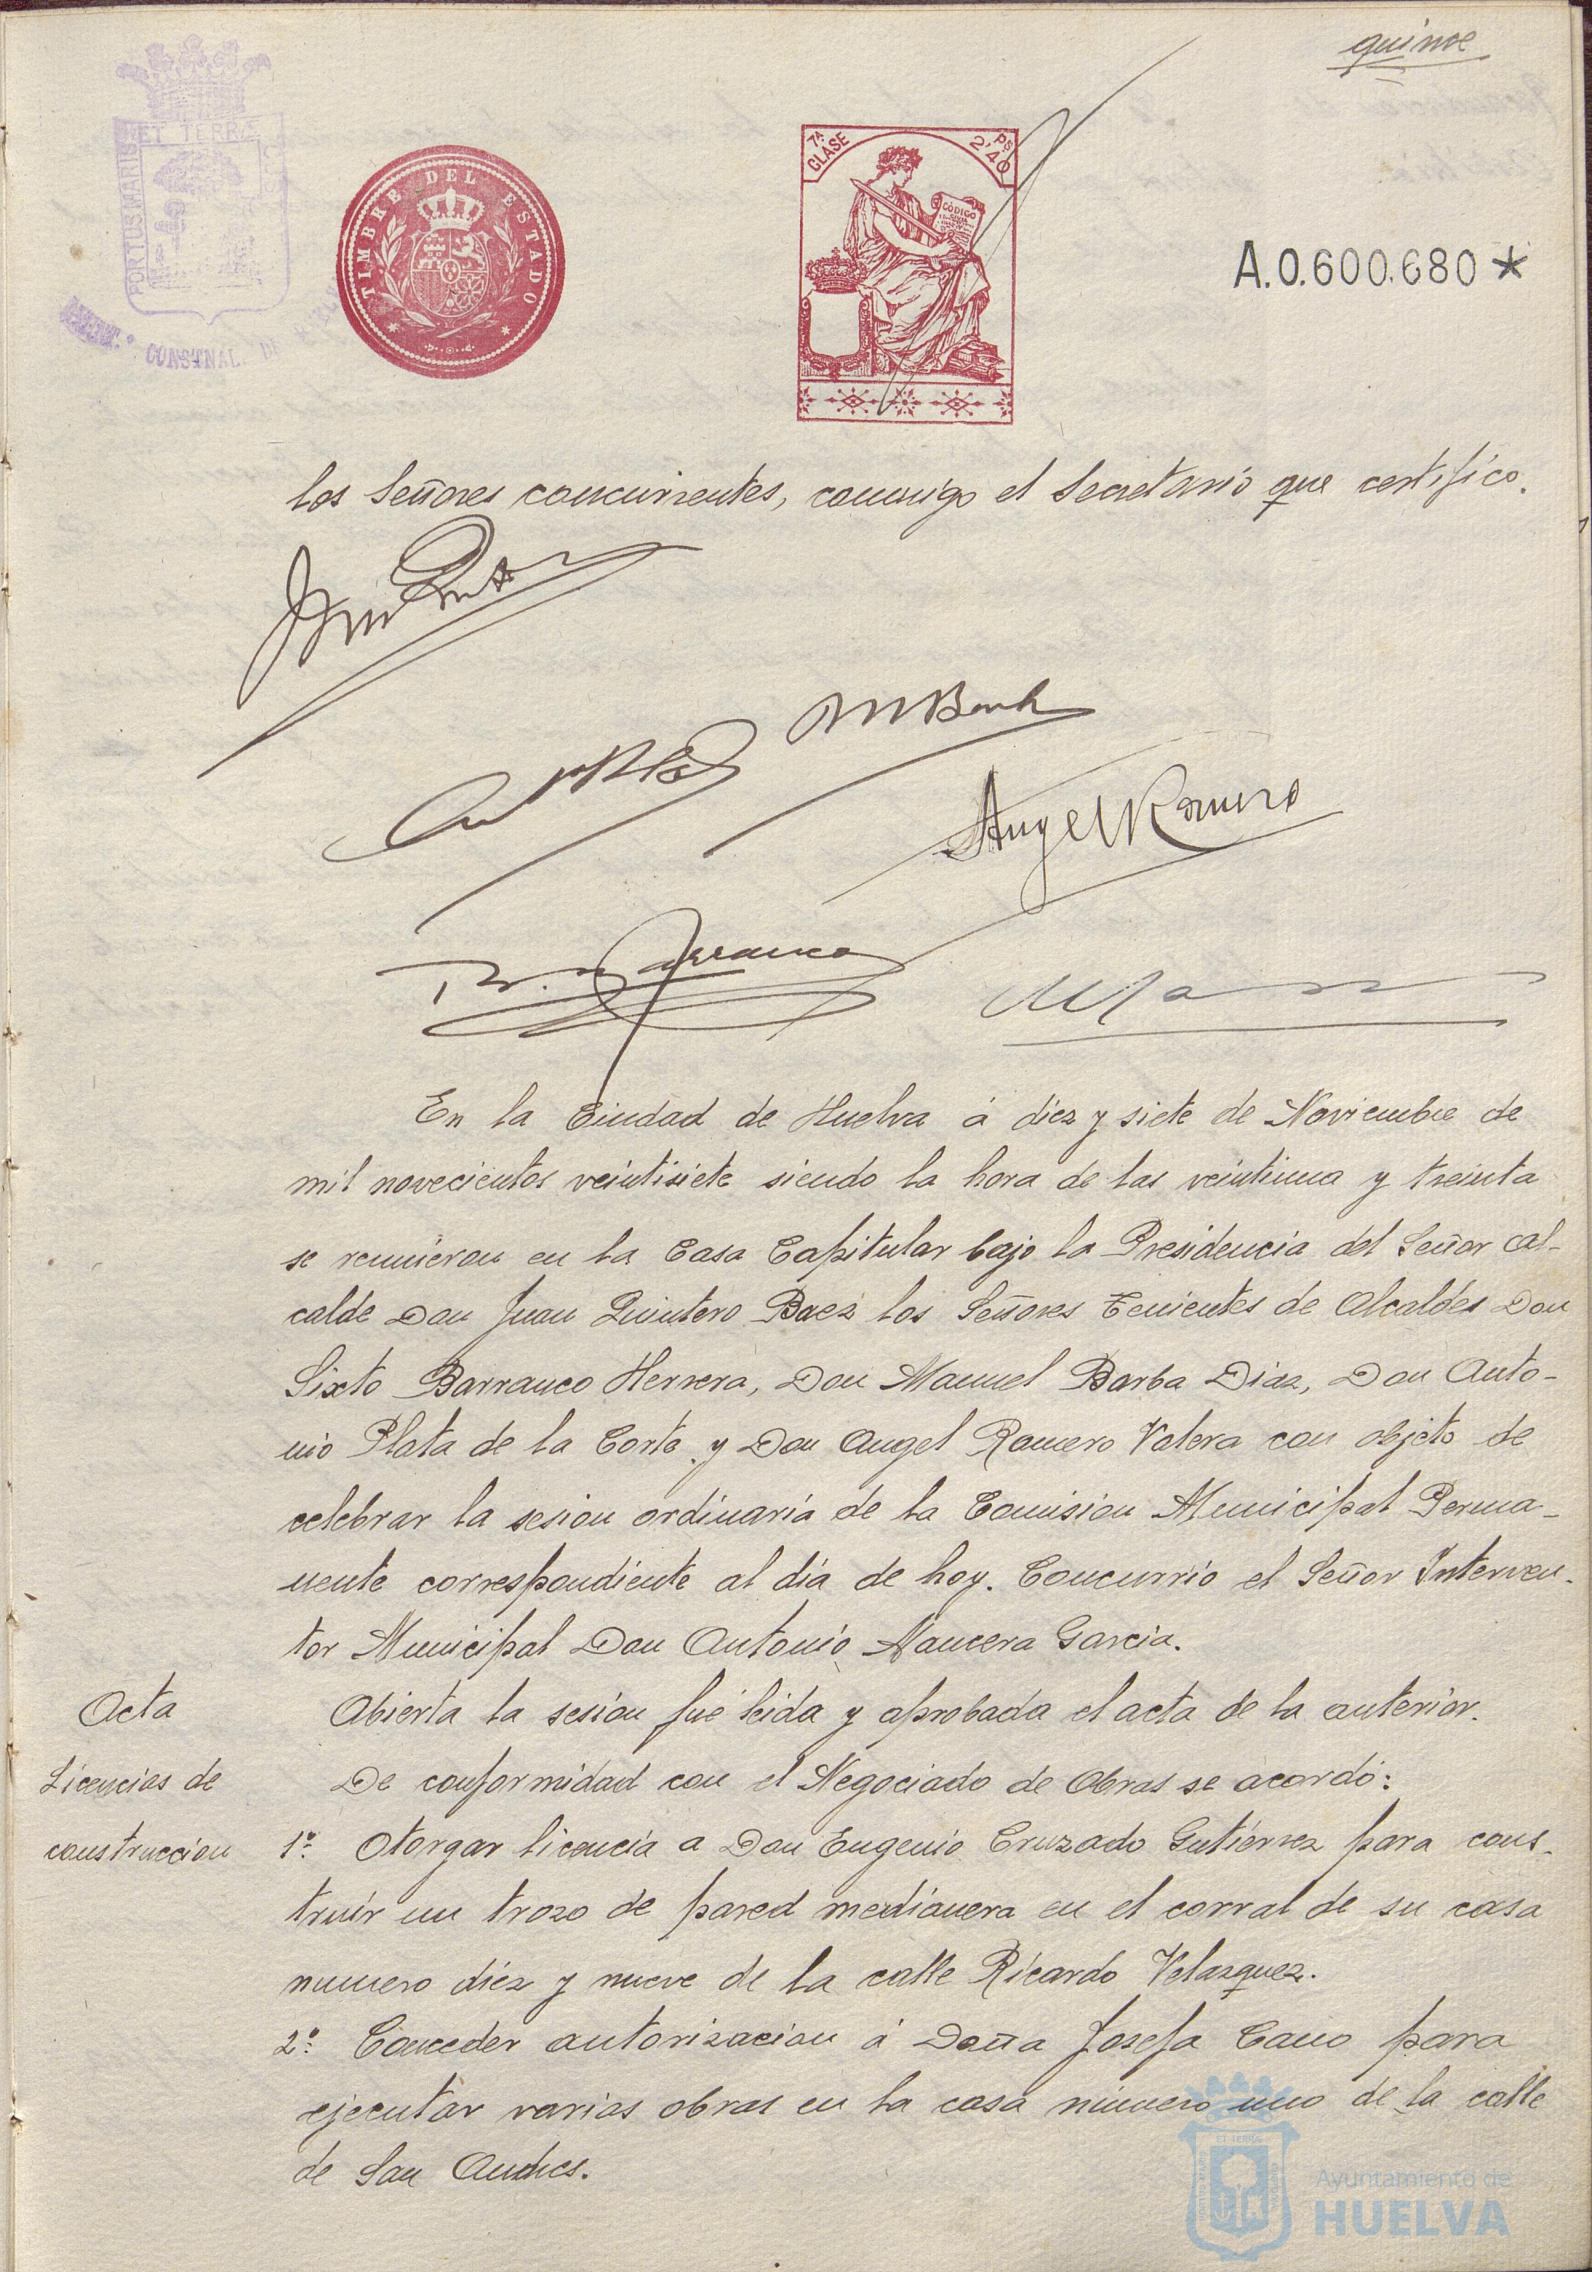 quince
PORTUS MARIS ET TERRÆ CUS
CONSTNAL. DE
TIMBRE DEL ESTADO
7ª CLASE
Ps 2'40
CÓDIGO
A.0.600.680 *
los Señores concurrentes, conmigo el Secretario que certifico.
Angel Romero
En la Ciudad de Huelva á diez y siete de Noviembre de
mil novecientos veintisiete siendo la hora de las veintiuna y treinta
se reunieron en la Casa Capitular bajo la Presidencia del Señor Al-
calde Don Juan Quintero Baez los Señores Tenientes de Alcaldes Don
Sixto Barranco Herrera, Don Manuel Barba Diaz, Don Anto-
nio Plata de la Corte y Don Angel Romero Valera con objeto de
celebrar la sesion ordinaria de la Comision Municipal Perma-
nente correspondiente al dia de hoy. Concurrió el Señor Interven-
tor Municipal Don Antonio Mancera Garcia.
Acta
Abierta la sesion fué leida y aprobada el acta de la anterior.
Licencias de
construccion
De conformidad con el Negociado de Obras se acordó:
1º. Otorgar licencia a Don Eugenio Cruzado Gutiérrez para cons-
truir un trozo de pared medianera en el corral de su casa
numero diez y nueve de la calle Ricardo Velazquez.
2º. Conceder autorizacion á Doña Josefa Cano para
ejecutar varias obras en la casa número uno de la calle
de San Andres.
Ayuntamiento de
HUELVA